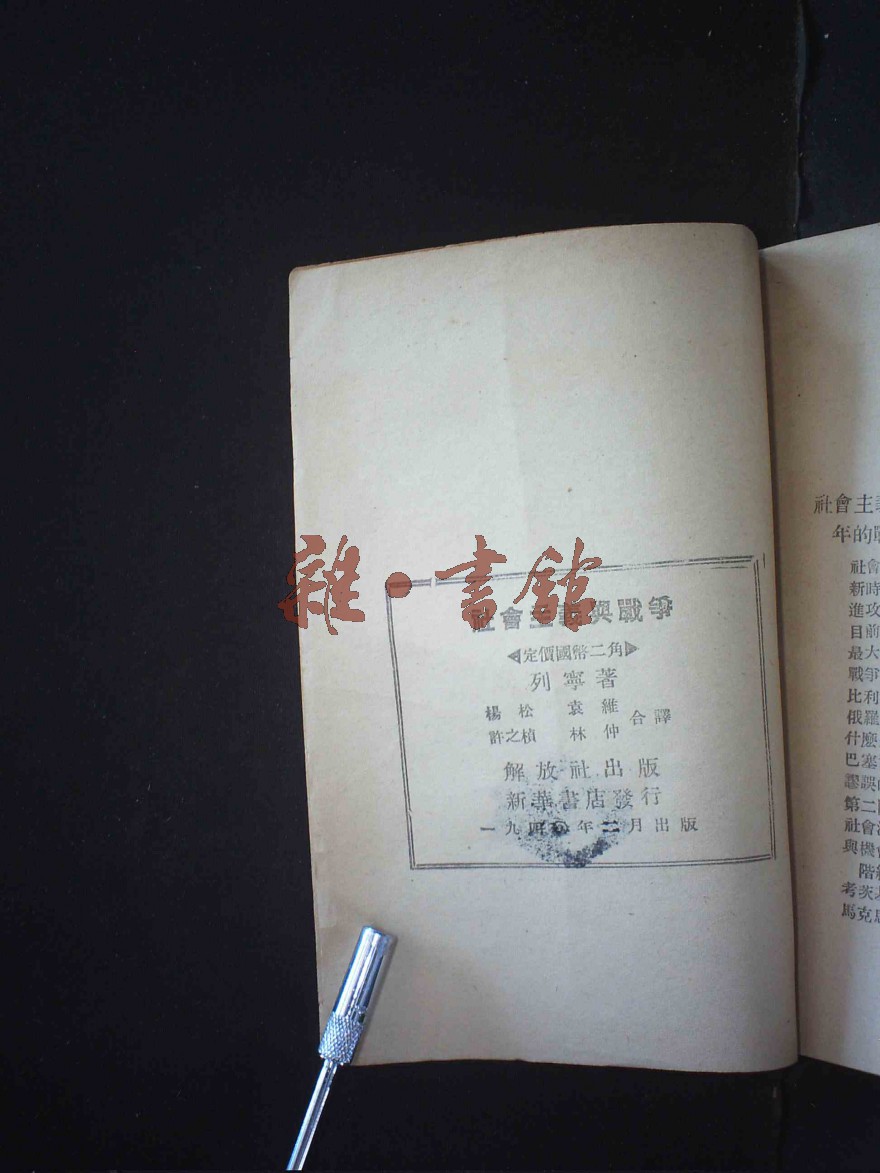 雜·書館
社會主義與戰爭
◁定價國幣二角▷
列寧著
楊松 袁維
許之楨 林仲
合譯
解放社出版
新華書店發行
一九四 年二月出版
社會主義
年的
社會
新時
進攻
目前
最大
戰爭
比利
俄羅
什麼
巴塞
謬誤
第二
社會
與機會
階級
考茨
馬克思